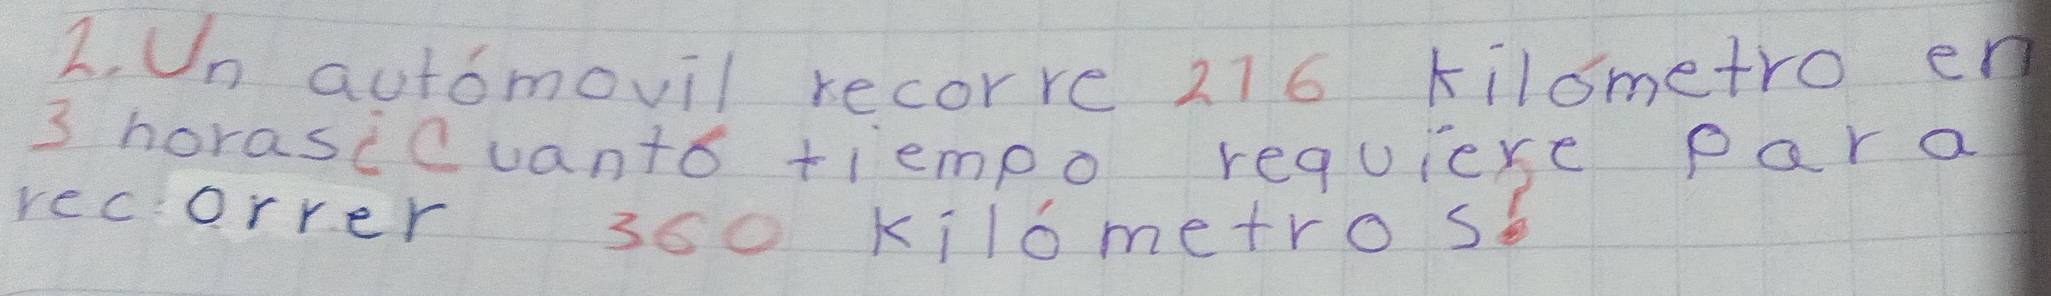 2. Un autómovil recorre 216 kilómetro en
3 horas¿Cuantó tiempo requiere para
recorrer 360 kilómetros?